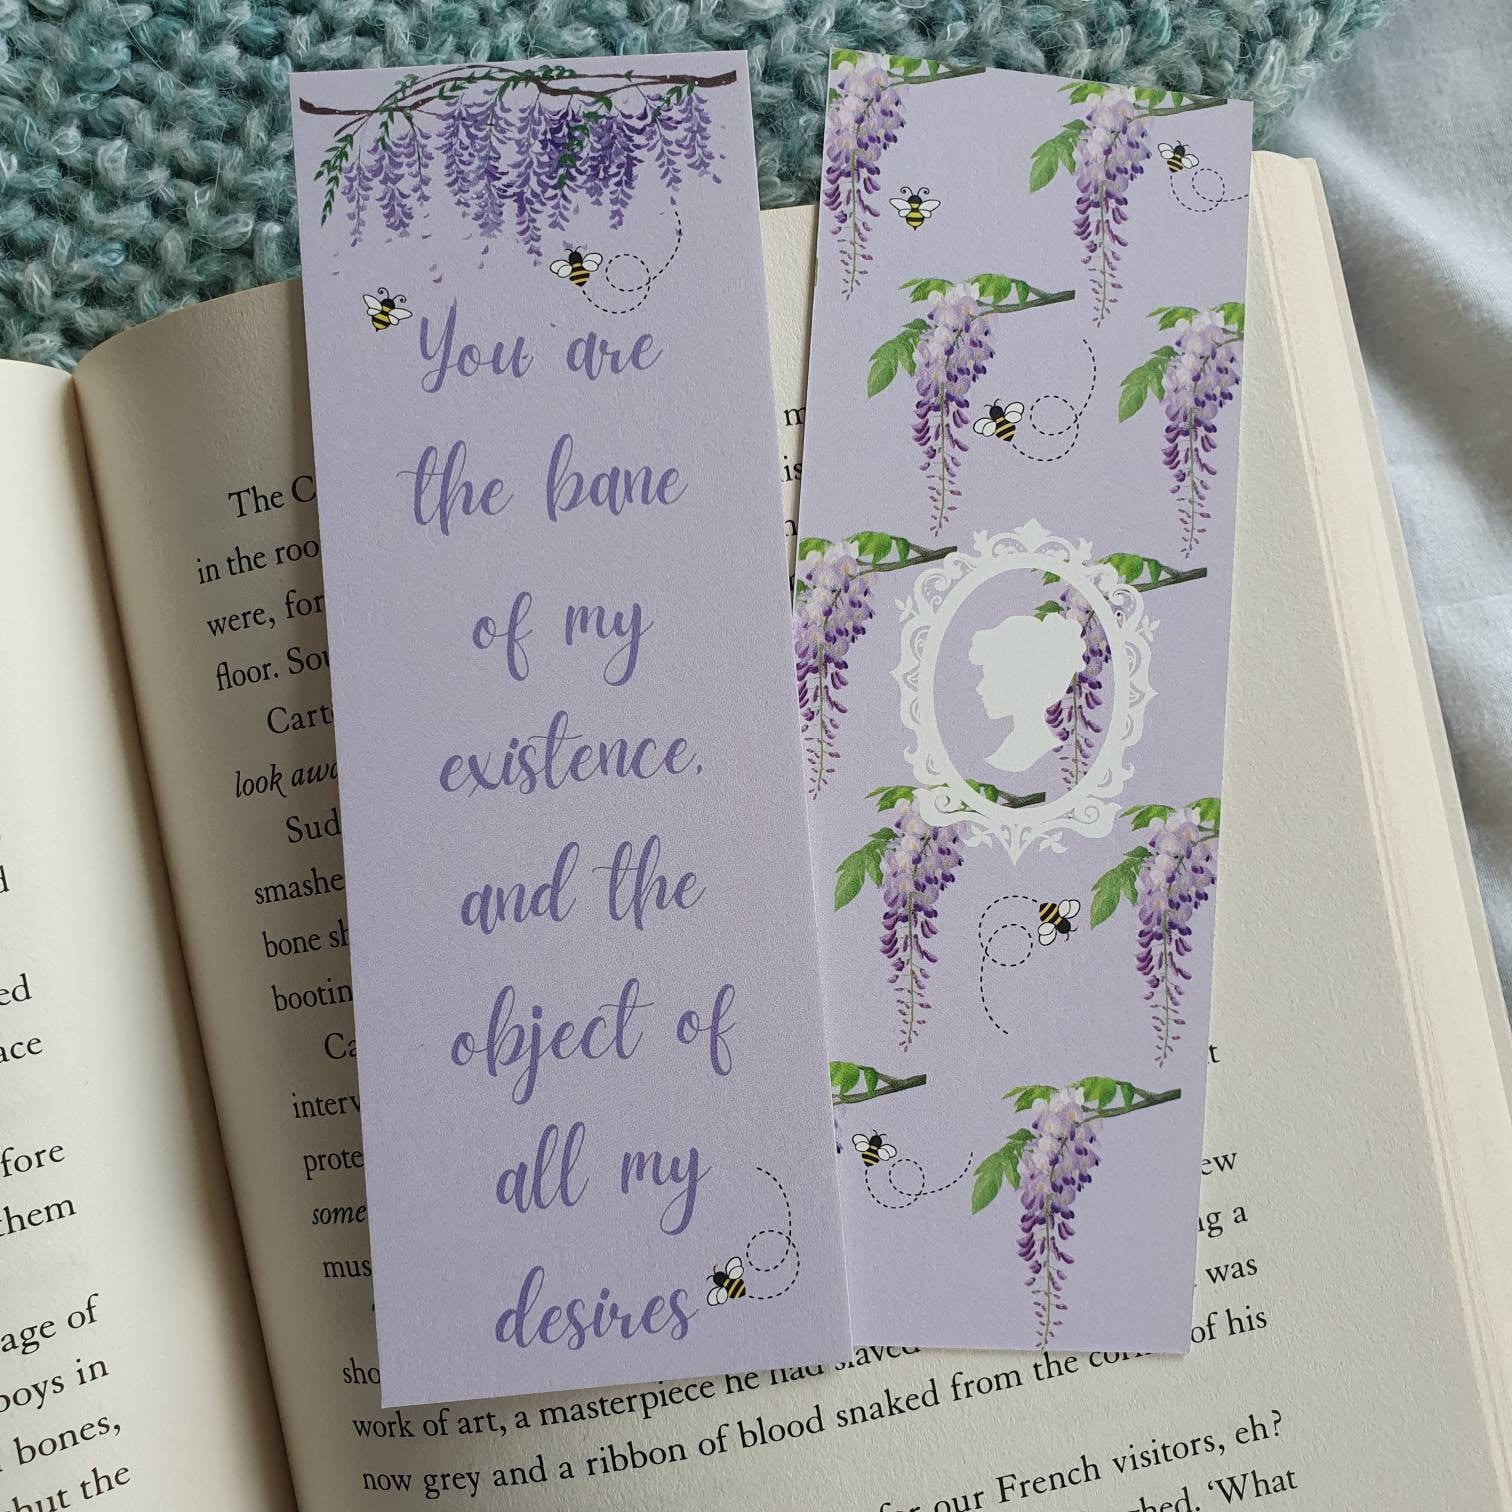 You are
the bane
of my
existence,
and the
object of
all my
desires
The C
in the roo
were, for
floor. Sou
Cart
look awa
Sud
smashe
bone sh
bootin
Ca
interv
prote
some
mus
sho
work of art, a masterpiece he had slaved
now grey and a ribbon of blood snaked from the
of his
our French visitors, eh?
‘What
ew
g a
was
t
ed
ace
fore
them
age of
boys in
bones,
hut the